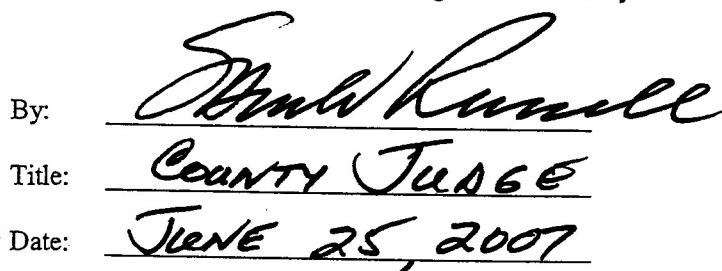 By:
Title: COUNTY JUDGE
Date: JUNE 25, 2007